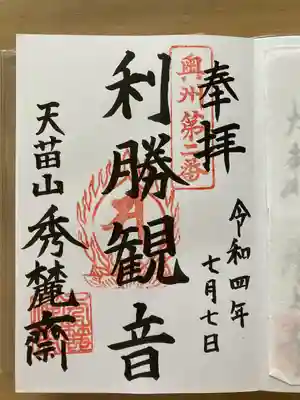 奉拝
奥州第二番
令和四年
七月七日
利勝観音
天苗山秀麓齋